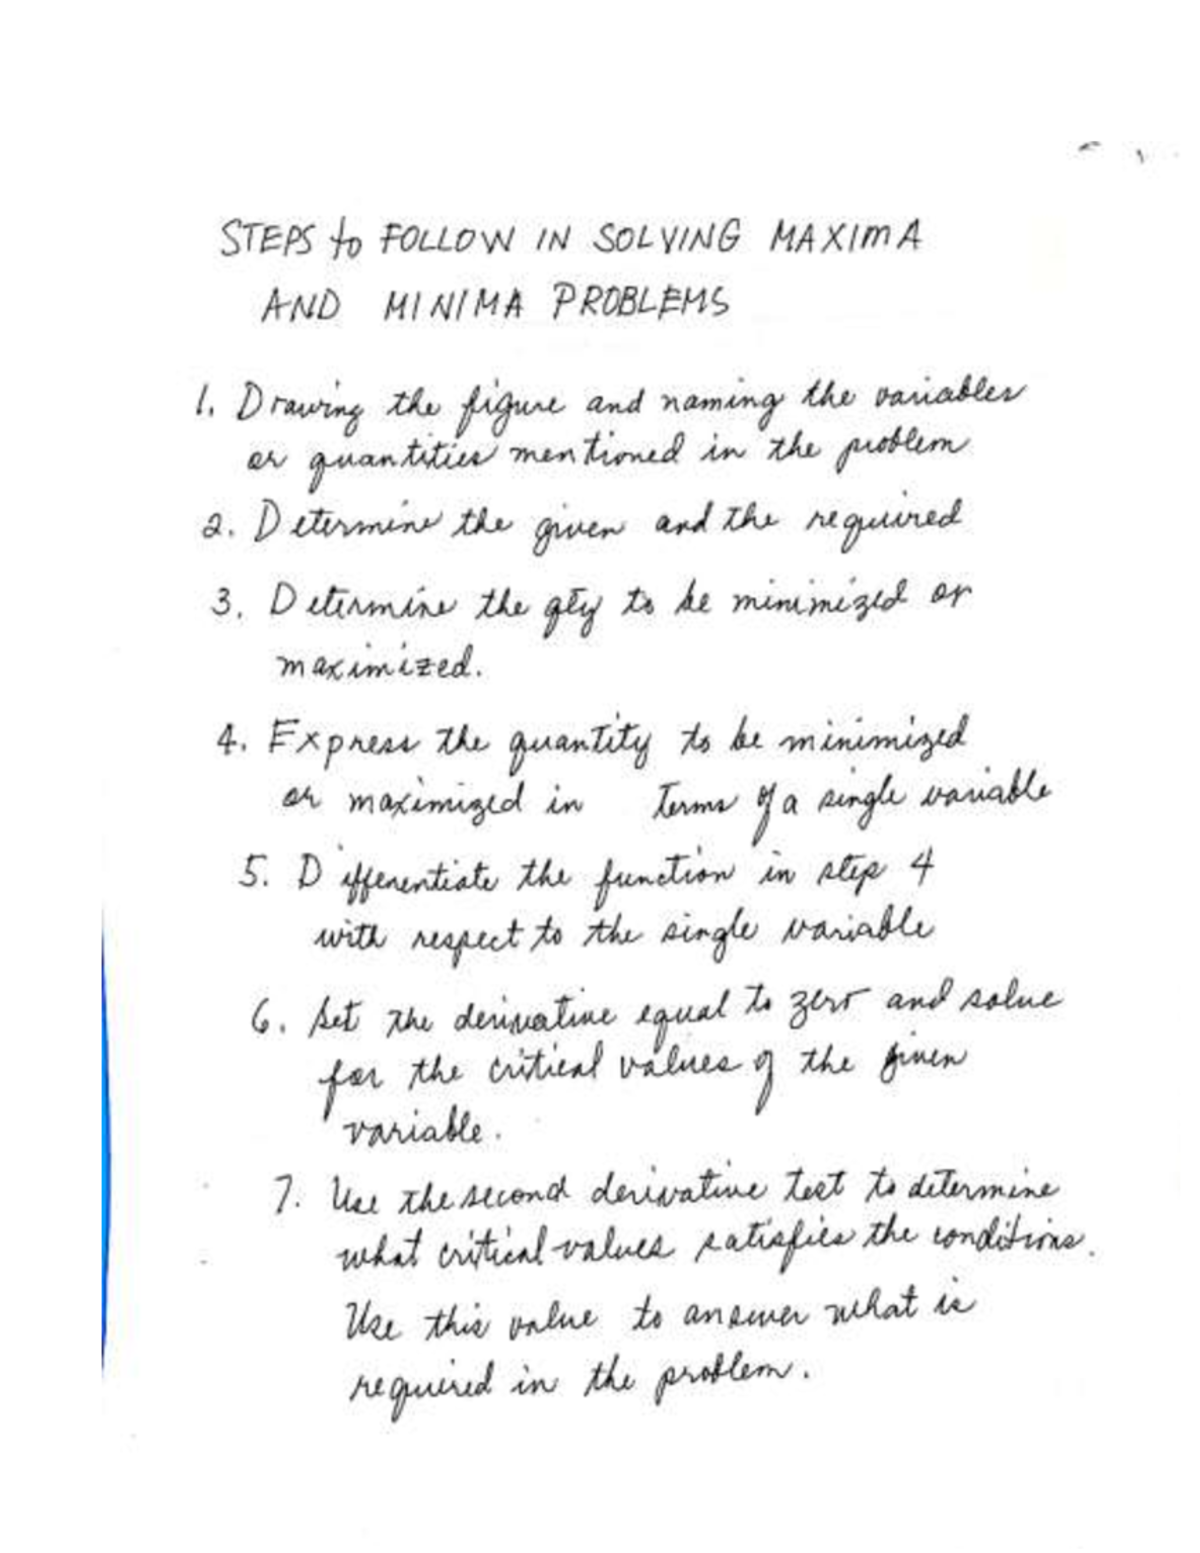 STEPS to FOLLOW IN SOLVING MAXIMA
AND MINIMA PROBLEMS
1. Drawing the figure and naming the variables
or quantities mentioned in the problem
2. Determine the given and the required
3. Determine the qty to be minimized or
maximized.
4. Express the quantity to be minimized
or maximized in terms of a single variable
5. Differentiate the function in step 4
with respect to the single variable
6. Set the derivative equal to zero and solve
for the critical values of the given
variable.
7. Use the second derivative test to determine
what critical values satisfies the conditions.
Use this value to answer what is
required in the problem.